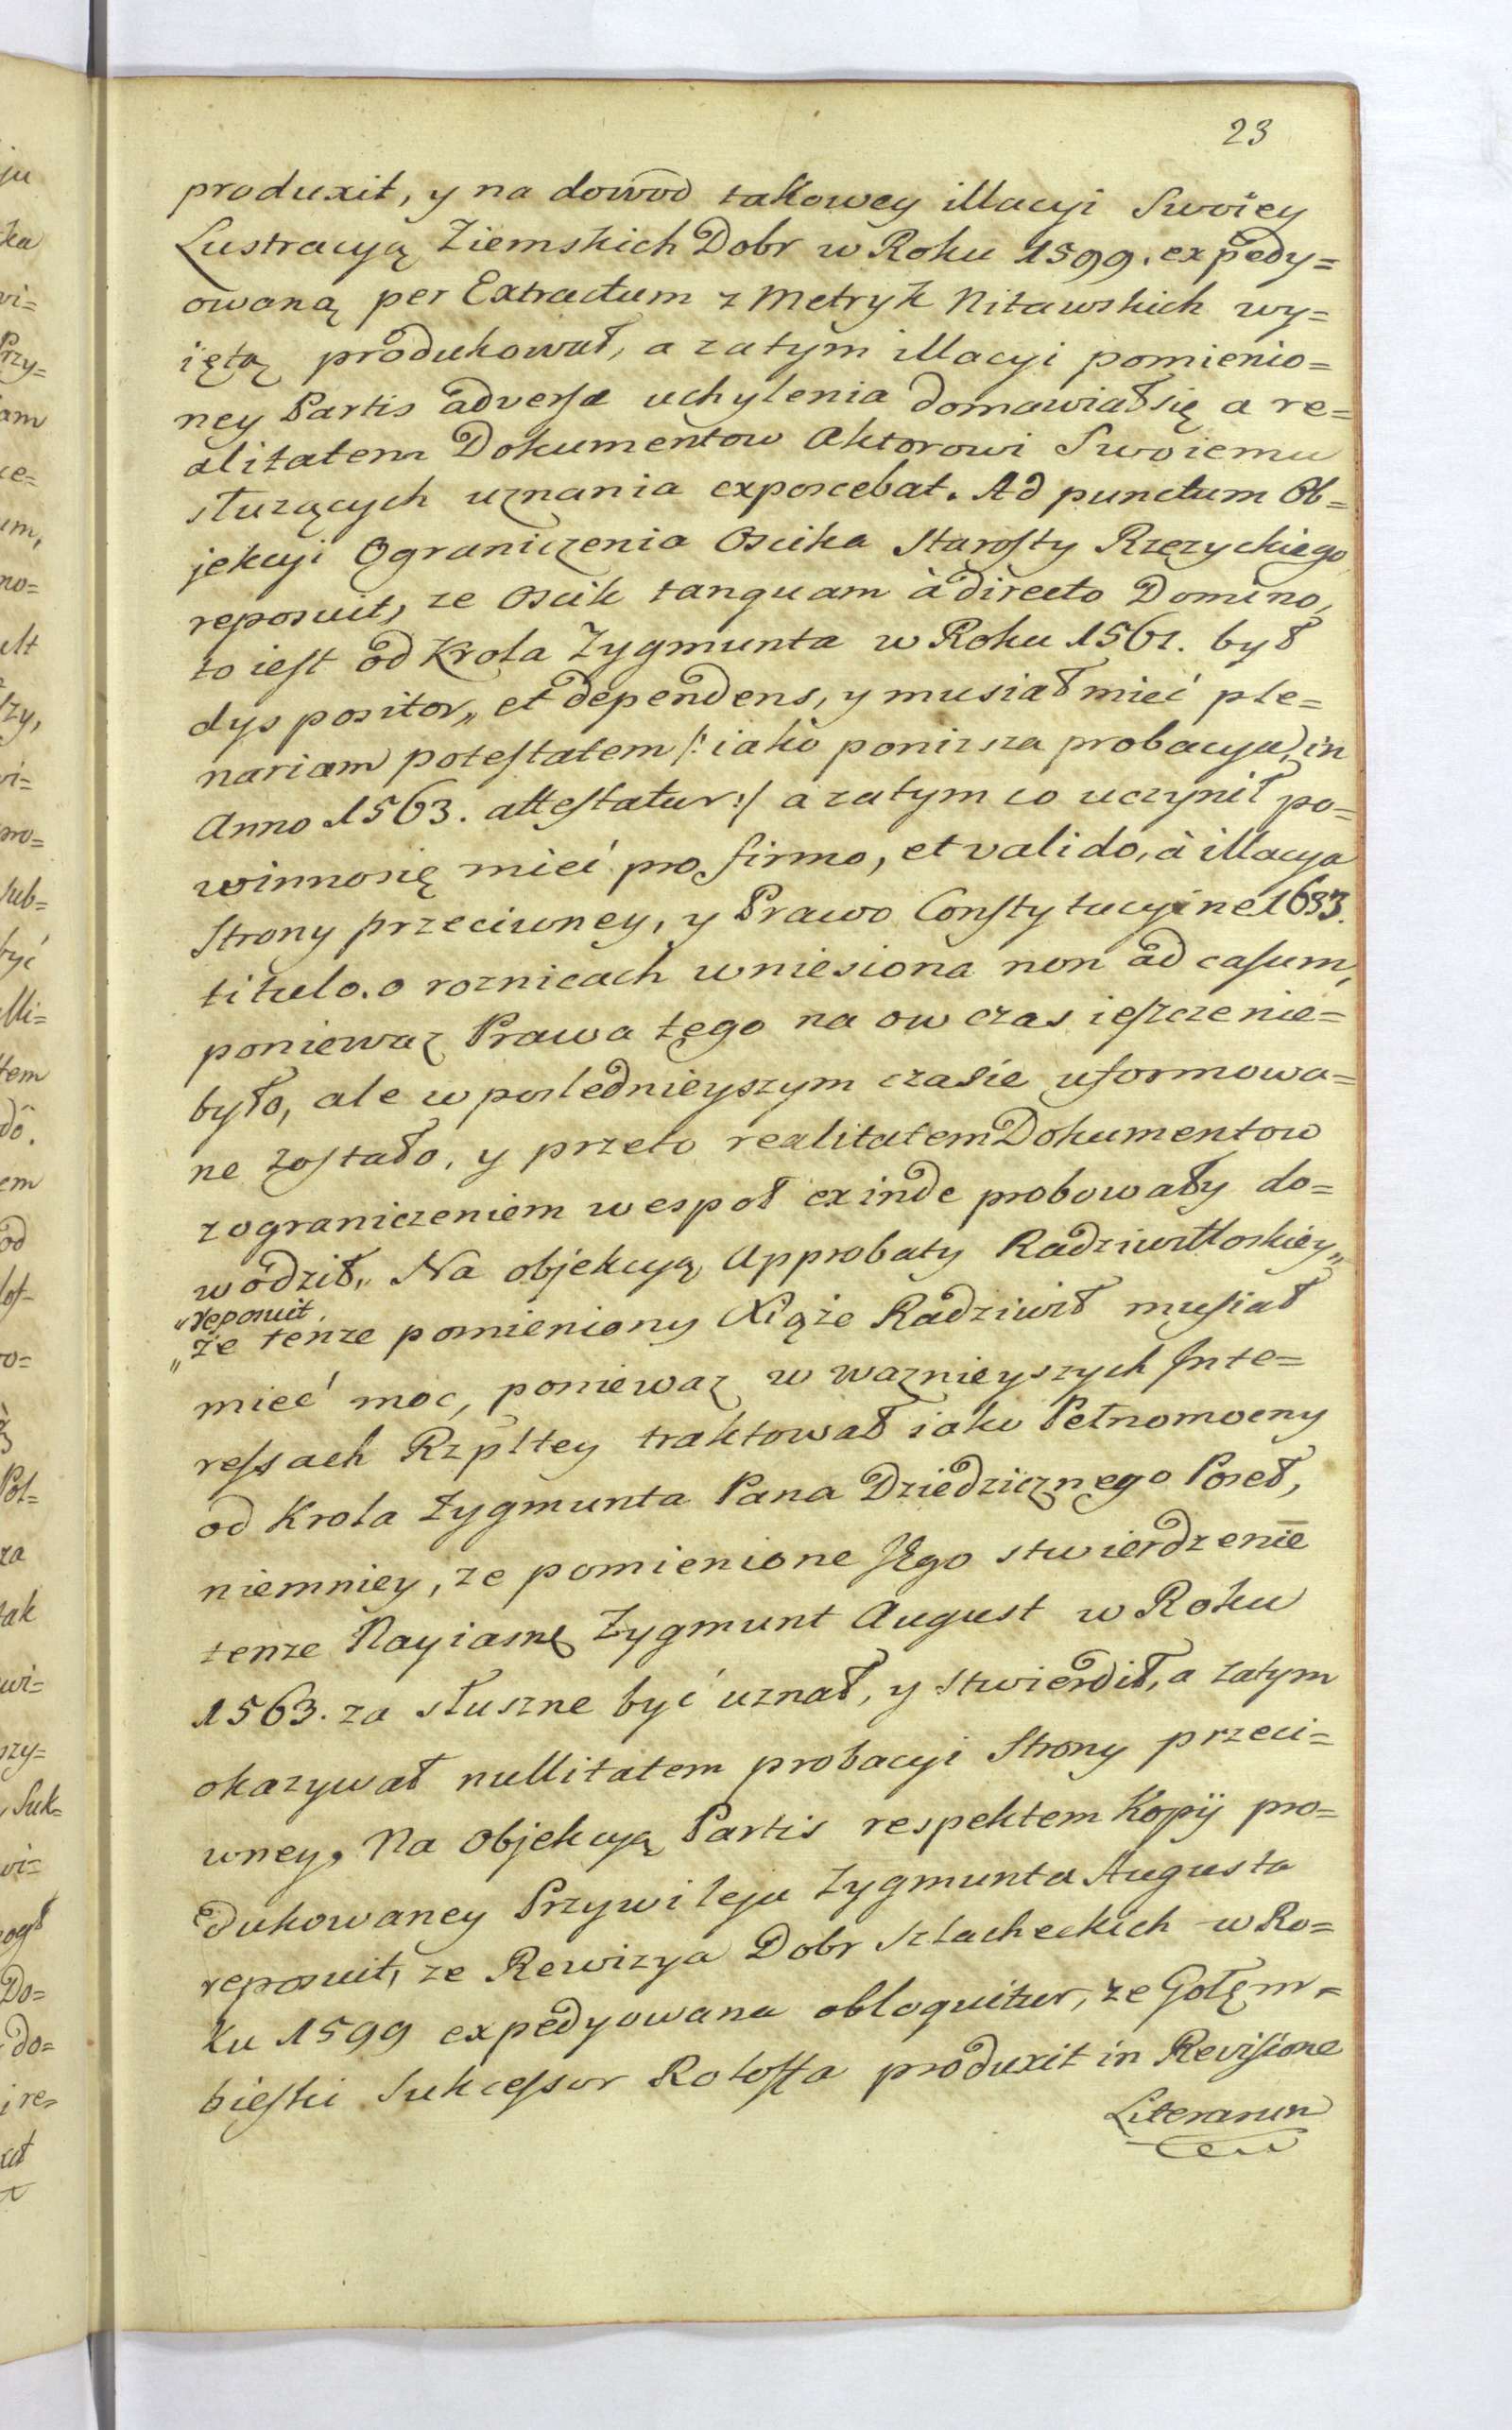 23
produxit, y na dowod takowey illacyi Swoiey
Lustracyą Ziemskich Dobr w Roku 1599. expedy=
owaną per Extractum z Metryk Nitawskich wy=
iętą produkował, a zatym illacyi pomienio=
ney Partis adversæ uchylenia domawiał się a re=
alitatem Dokumentow Aktorowi Swoiemu
służących uznania exposcebat. Ad punctum Ob=
jekcyi Ograniczenia Oscika Starosty Rzezyckiego
reposuit, ze Oscik tanquam à directo Domino,
to iest od Krola Zygmunta w Roku 1561. był
dyspositor„ et dependens, y musiał mieć ple=
nariam potestatem /: iako ponizsza probacya, in
Anno 1563. attestatur :/ a zatym co uczynił po=
winno się mieć pro firmo, et valido, à illacya
Strony przeciwney, y Prawo Constytucyine 1633.
titulo. o roznicach wniesiona non ad casum,
poniewaz Prawa tego na ow czas ieszcze nie=
było, ale w poslednieyszym czasie uformowa=
ne zostało, y przeto realitatem Dokumentow
z ograniczeniem wespoł exinde probowały do=
wodził„ Na objekcyą Approbaty Radziwiłłoskiey„
„reposuit
„że tenze pomieniony Xiąże Radziwił musiał
mieć moc, poniewaz w waznieyszych Inte=
ressach Rzpltey traktował iako Pełnomocny
od Krola Zygmunta Pana Dziedzicznego Poseł,
niemniey, ze pomienione Jego stwierdzenie
tenze Nayiasne Zygmunt August w Roku
1563. za słuszne być uznał, y stwierdił, a zatym
okazywał nullitatem probacyi Strony przeci=
wney. Na Objekcyą Partis respektem Kopij pro=
dukowaney Przywileju Zygmunta Augusta
reposuit, ze Rewizya Dobr Szlacheckich w Ro=
ku 1599 expedyowana obloquitur, ze Gołęm=
bieski Sukcessor Rolossa produxit in Revisione
Literarum